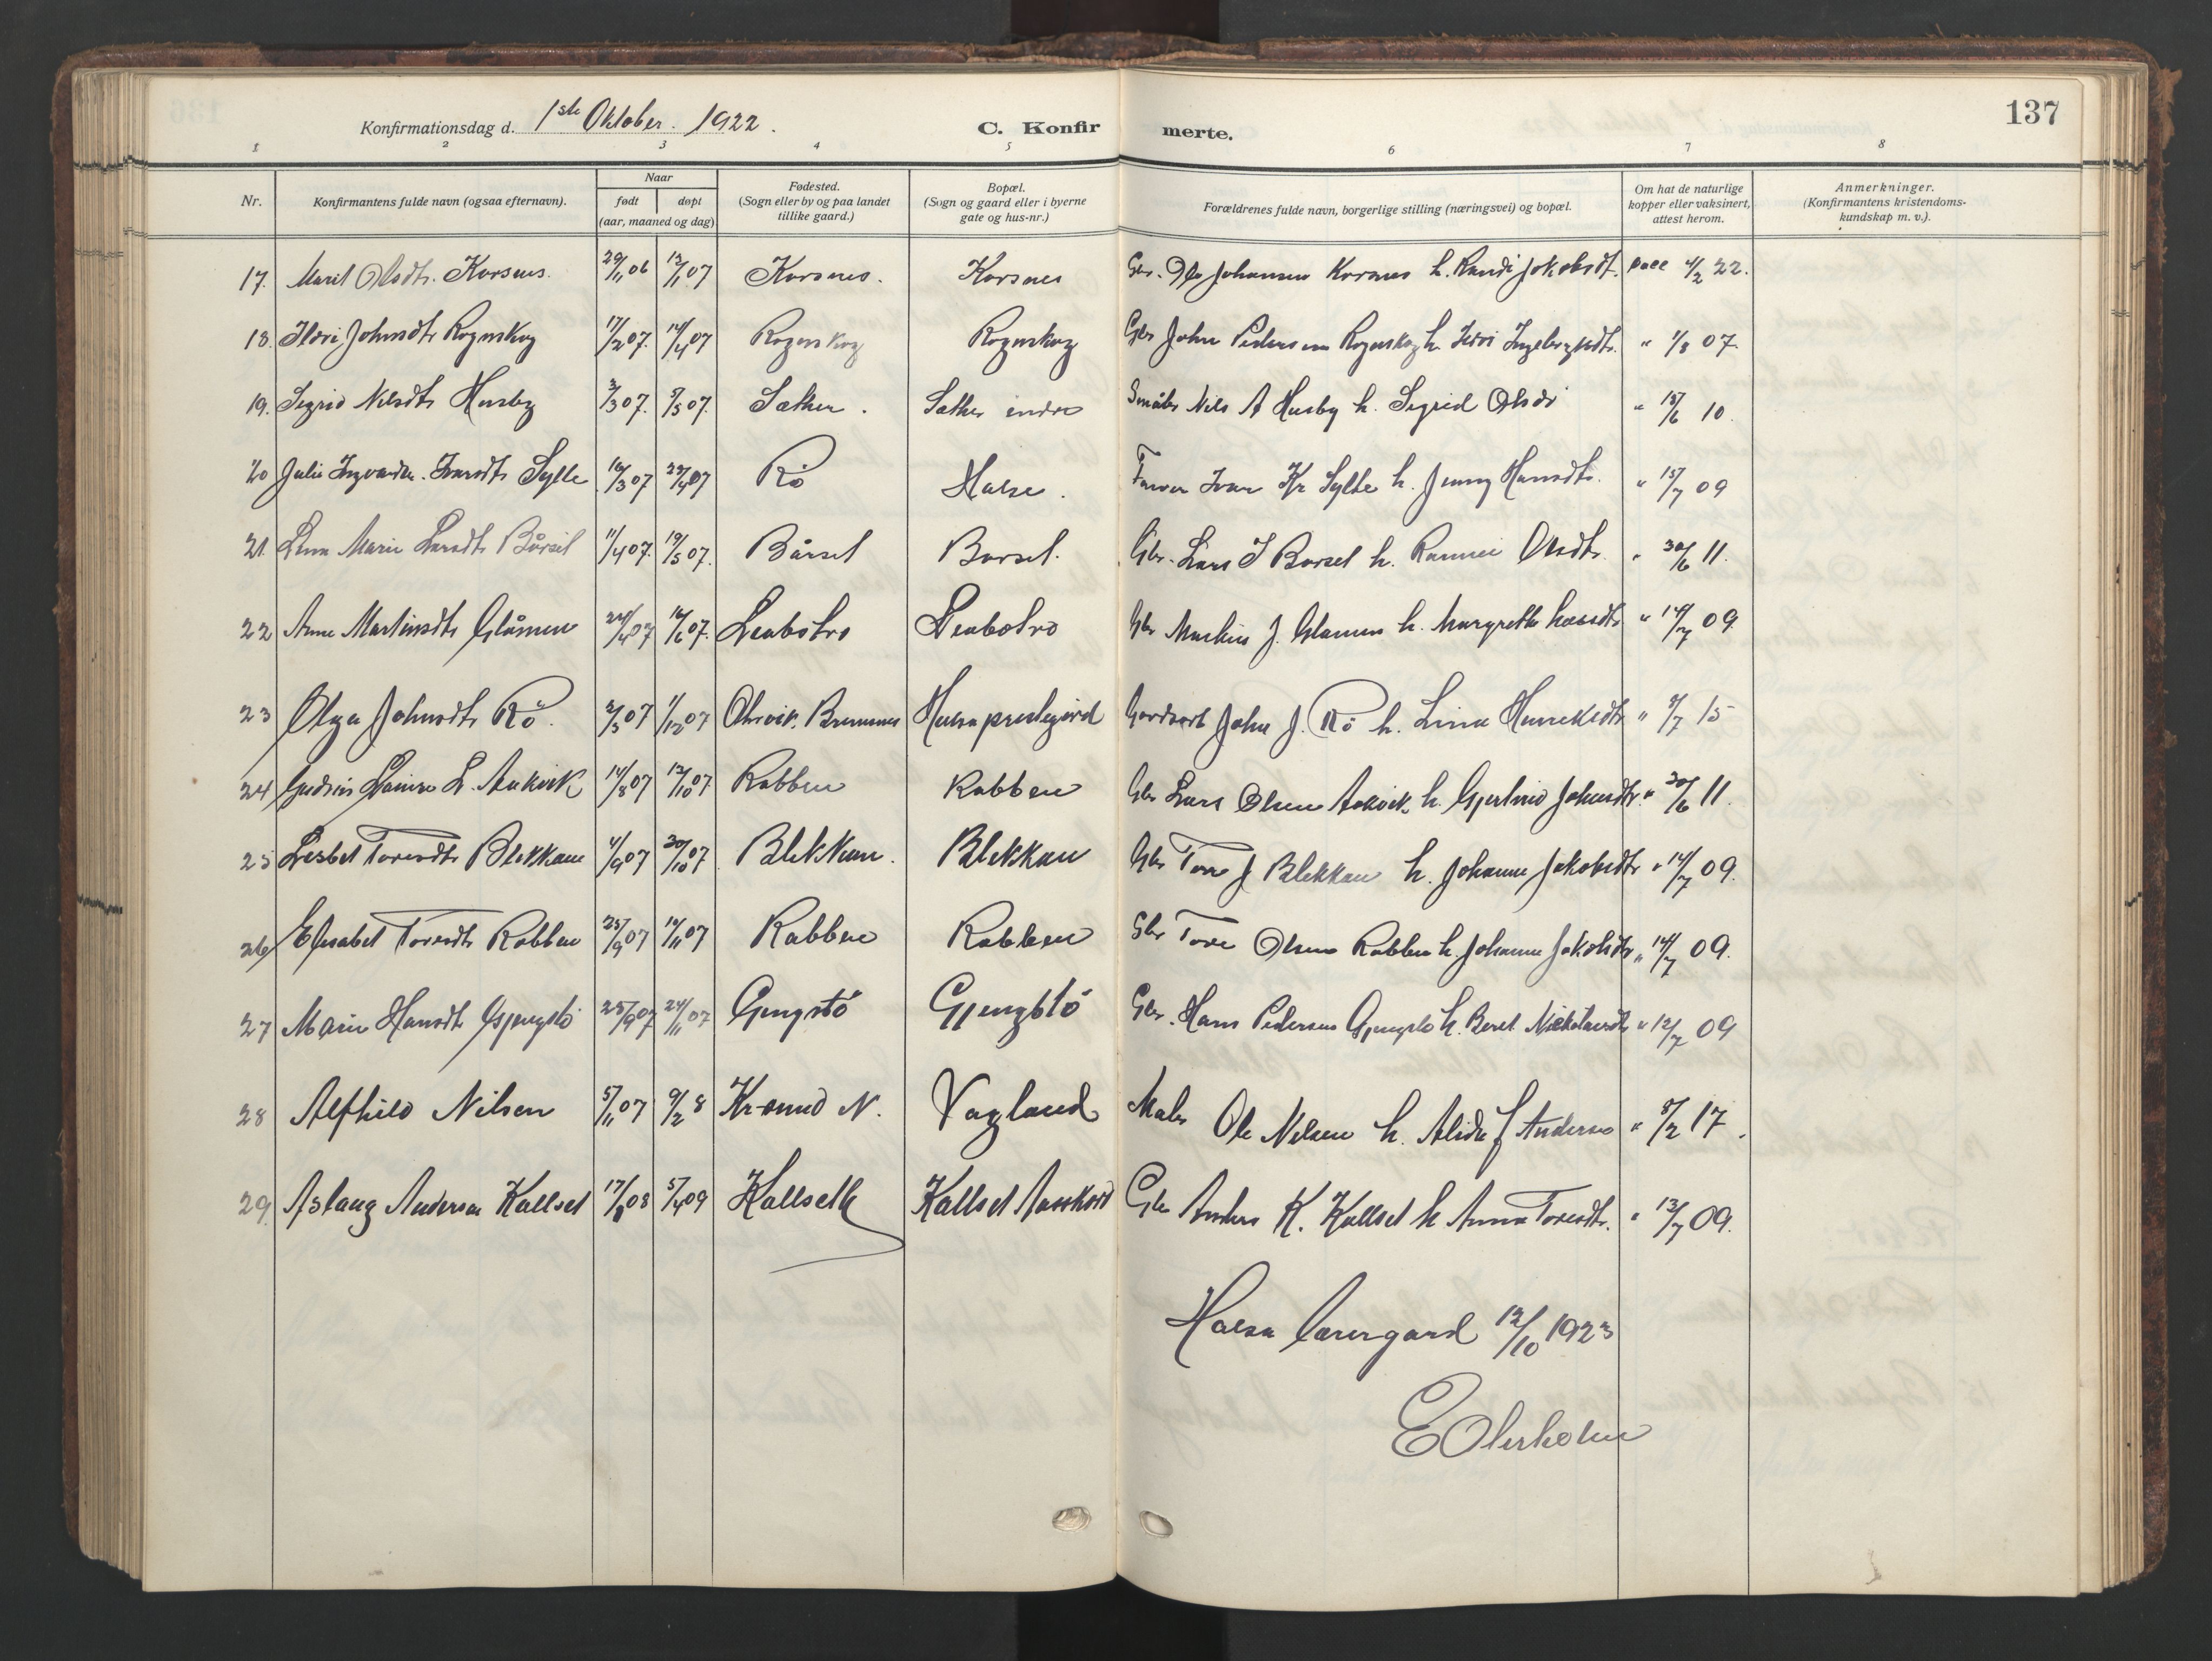 137
Konfirmationsdag d. 1ste Oktober. 1922. C. Konfir merte.
1 2 3 4 5 6 7 8
Nr. Konfirmantens fulde navn (ogsaa efternavn). Naar født døpt (aar, maaned og dag) Fødested. (Sogn eller by og paa landet tillike gaard.) Bopæl. (Sogn og gaard eller i byerne gate og hus-nr.) Forældrenes fulde navn, borgerlige stilling (næringsvei) og bopæl. Om hat de naturlige kopper eller vaksinert, attest herom. Anmerkninger. (Konfirmantens kristendoms-kundskap m. v.).
17. Marit Olsdtr. Korsnes. 29/11 06 13/1 07 Korsnes. Korsnes Gbr. Ola Johansen Korsnes h. Randi Jakobsdt. vacc 4/2 22.
18. Ildri Johnsdtr Rognskog 17/2 07. 14/4 07 Rognskog Rognskog Gbr John Pedersen Rognskog h. Ildri Ingebrigtsdtr. " 1/8 07.
19. Sigrid Nilsdtr Husby 3/3 07. 9/5 07. Sæther. Sæther indre Småbr Nils A Husby h. Sigrid Olsdr " 15/6 10.
20 Julie Ivarsdtr Sylte 16/3 07 Rø Halse. Farver Ivar Kr Sylte h. Jenny Hansdtr. " 15/7 09
21. Marie Larsdtr Bårset 11/4 07. 19/5 07. Bårset Barset. Gbr. Lars I Barset h. Olsdtr. " 30/6 11.
22 Anne Martinsdtr Glåmen 24/4 07 16/6 07. Leabotro Leabotro Gbr J. Glamen h. Margrethe " 14/7 09.
23 Olga Johnsdtr Rö. 2/5 07 1/12 07 Bremsnes Halsa prestegård John J. Rö h. Lina Henriksdtr " 8/7 15
24 L. Aakvik 14/8 07 13/10 07 Rabben Rabben Gbr Lars Olsen Aakvik h. Johnsdtr. " 30/6 11.
25 Lisbet Toresdtr Blekkan 4/9 07 30/10 07 Blekkan. Blekkan Gbr Tore J Blekkan h. Johanne Jakobsdtr " 14/7 09.
26 Elisabet Toresdtr Rabben 25/9 07 14/11 07 Rabben Rabben Gbr Tore Olsen Rabben h. Johanne Jakobsdtr " 14/7 09.
27 Marie Hansdtr Gjengstö 25/9 07 24/11 07 Gjengstö Gjengstö Gbr. Hans Pedersen Gjengstö h. Beret " 12/7 09
28 Alfhild Nilsen 5/11 07 9/2 8 Kr-sund N. Vagland Maler Ole Nilsen h. Alida f Andersen " 8/2 17.
29. Aslaug Andersen Kallset 17/1 08 5/4 09 Kallseth Kallset Gbr Anders K. Kallset h Anna Toresdtr. " 13/7 09.
Halsa 12/10 1923
E Olerholm